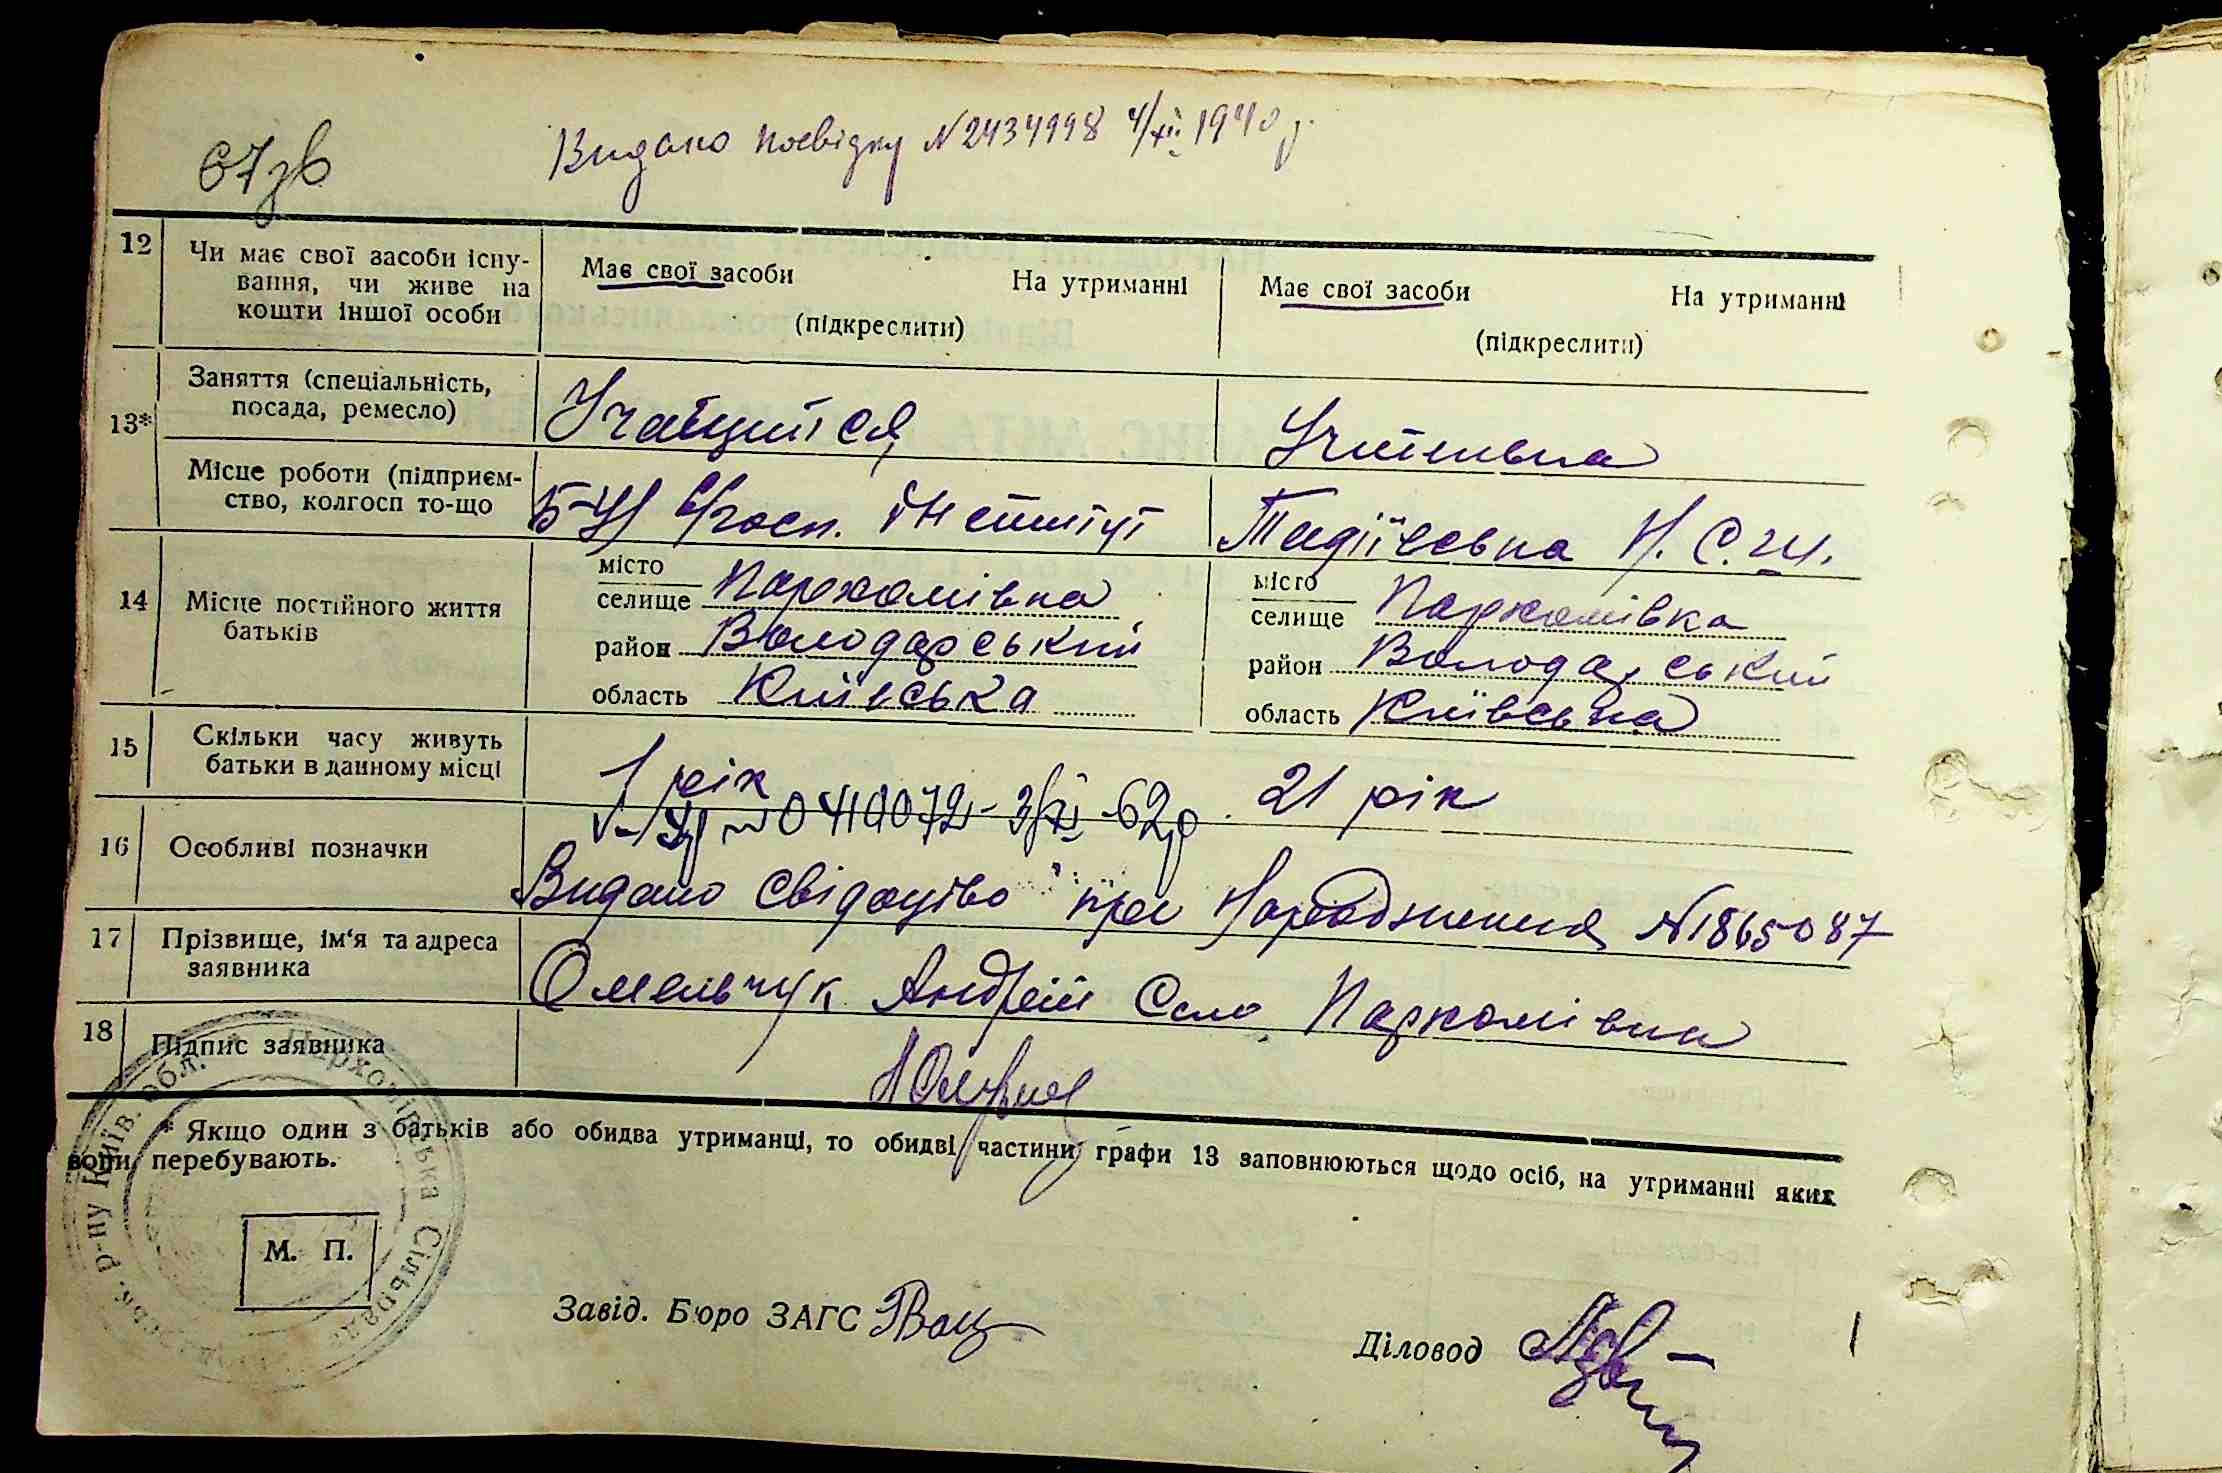 67зв
Видано посвідку N 2434998 4/XII 1940 р.
12
Чи має свої засоби існу-
вання, чи живе на
кошти іншої особи
Має свої засоби На утриманні
(підкреслити)
Має свої засоби На утриманні
(підкреслити)
13*
Заняття (спеціальність,
посада, ремесло)
Учащийся
Учителька
Місце роботи (підприєм-
ство, колгосп то-що
Б-Ц с/госп. інститут
Тадіївська Н.С.Ш.
14
Місце постійного життя
батьків
місто
селище Пархомівка
район Володарський
область Київська
місто
селище Пархомівка
район Володарський
область Київська
15
Скільки часу живуть
батьки в данному місці
1 рік
21 рік
16
Особливі позначки
0410072 62р.
Видано свідоцтво про народження N 1865087
17
Прізвище, ім'я та адреса
заявника
Омельчук Андрій Село Пархомівка
18
Підпис заявника
* Якщо один з батьків або обидва утриманці, то обидві частини графи 13 заповнюються щодо осіб, на утриманні яких
вони перебувають.
М. П.
Пархомівська Сільрада р-ну Київ. обл.
Завід. Бюро ЗАГС
Діловод